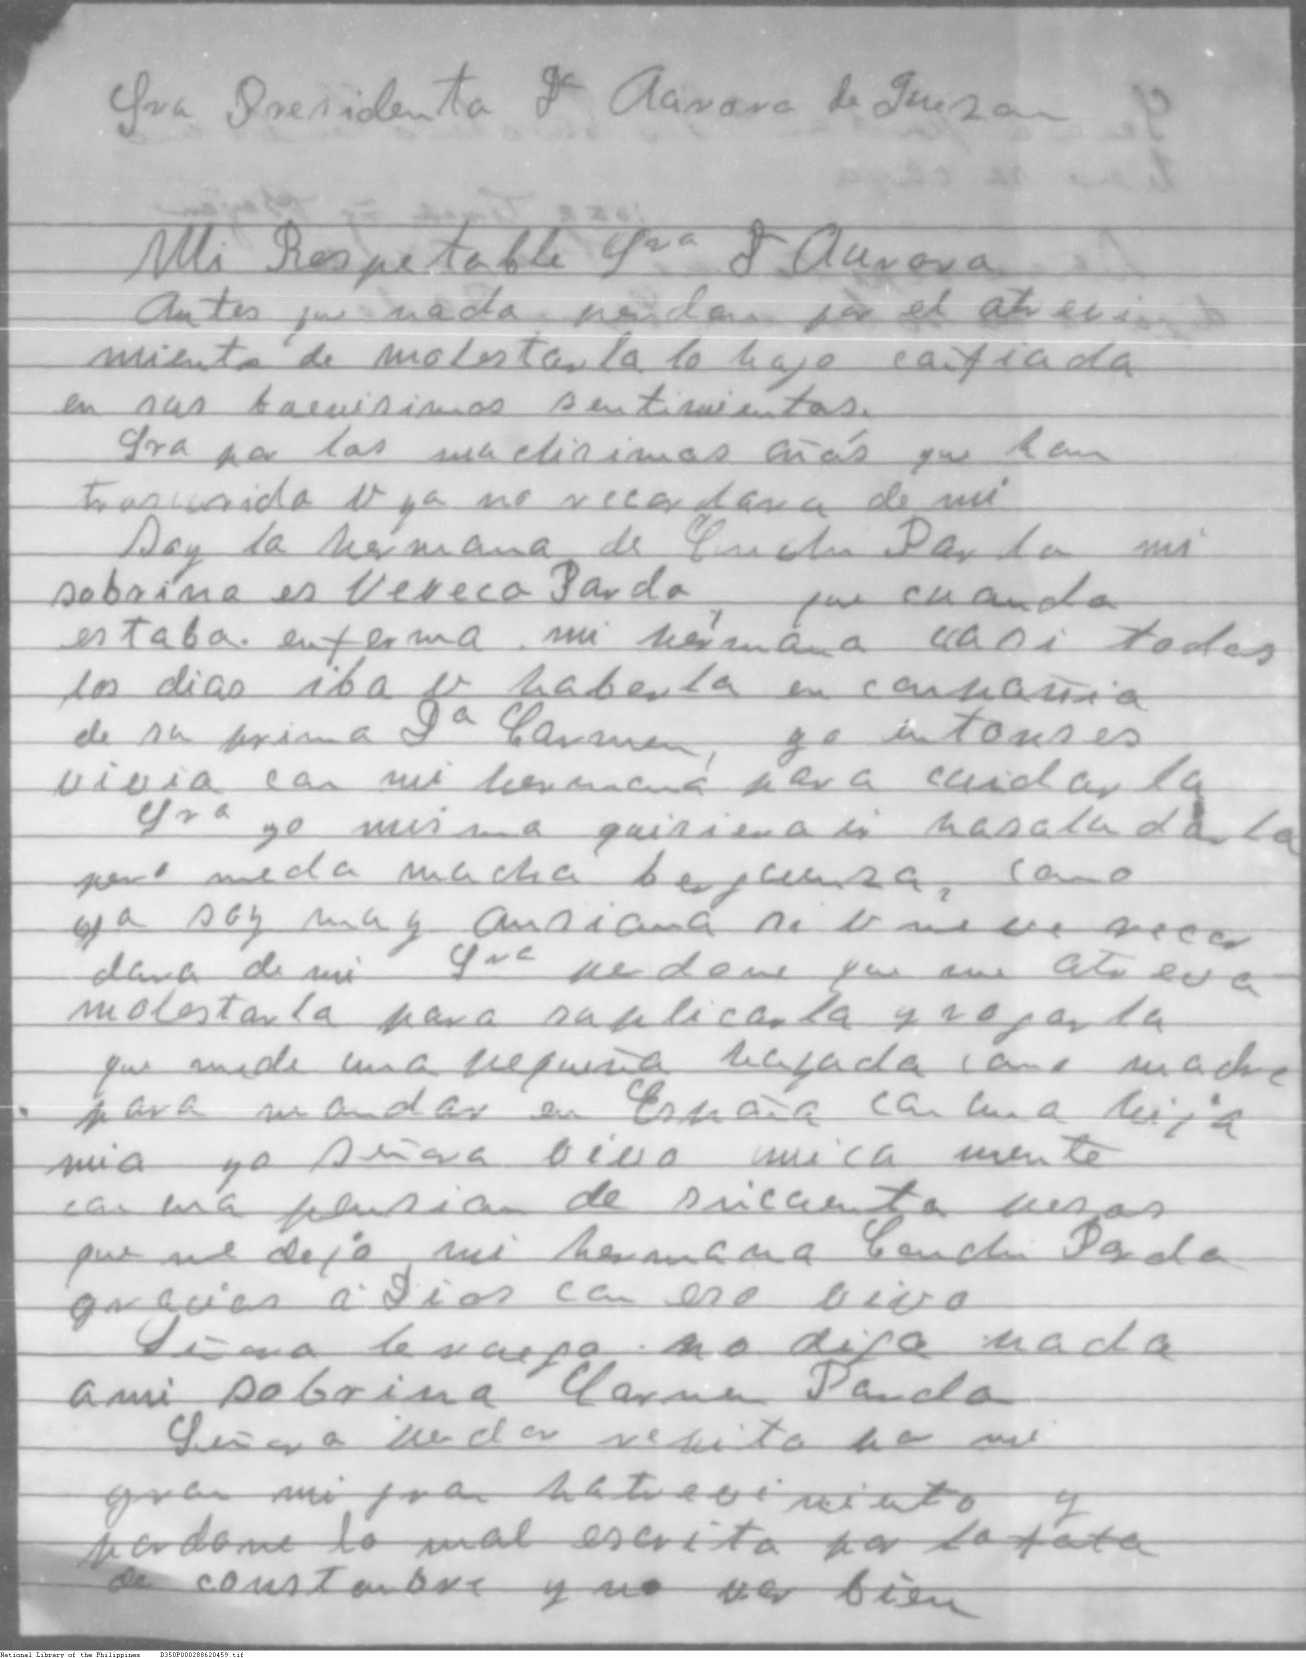 Sra Presidenta Da Aurora de Quezon
Mi Respetable Sra Da Aurora
Antes que nada perdon por el atrevi
miento de molestarla lo hago confiada
en sus buenisimos sentimientos.
Sra por los muchisimos años que han
trascurido V ya no recordara de mi
Soy la hermana de Conchi Pardo mi
sobrina es Pardo, que cuando
estaba enferma mi hermana casi todos
los dias iba V haberla en compañia
de su prima Da Carmen, yo entonses
vivia con mi hermana para cuidarla
Sra yo misma quisiera ir hasaludarla
pero meda mucha berguenza, como
ya soy muy ansiana si V nueve recor
dara de mi Sra perdone que me atreva
molestarla para suplicarla y rogarla
que mede una pequeña hayuda como madre
para mandar en España con una hija
mia yo señora vivo unica mente
con una pension de sincuenta pesos
que me dejo mi hermana Conchi Pardo
gracias a Dios con eso vivo
Señora le ruego no diga nada
ami sobrina Carmen Pardo
Señora perdon repito por mi
gran mi gran hatrevimiento y
pardone lo mal escrito por la fata
de constunbre y no ver bien
National Library of the Philippines D350P000288620459.tif